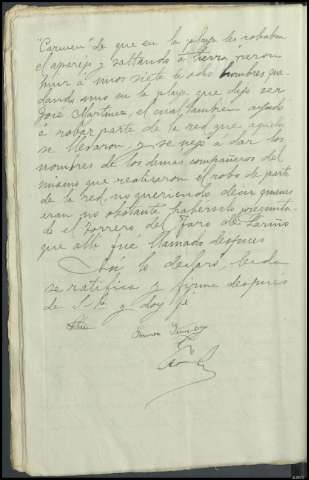 "Carmen" de que en la playa les robaban
el aparejo y saltando a tierra vieron
huir a unos siete u ocho hombres que
dando uno en la playa que dijo ser
José Martínez, el cual tambien ayudó
á robar parte de la red que aquellos
se llevaron y se negó a dar los
nombres de los demas compañeros del
mismo que realizaron el robo de parte
de la red, no queriendo decir quienes
eran no obstante habérselo pregunta-
do el torrero del Faro de Lariño
que allí fue llamado despues
Así lo declaró, leida
se ratifica y firma despues
de S. Sª y doy fe